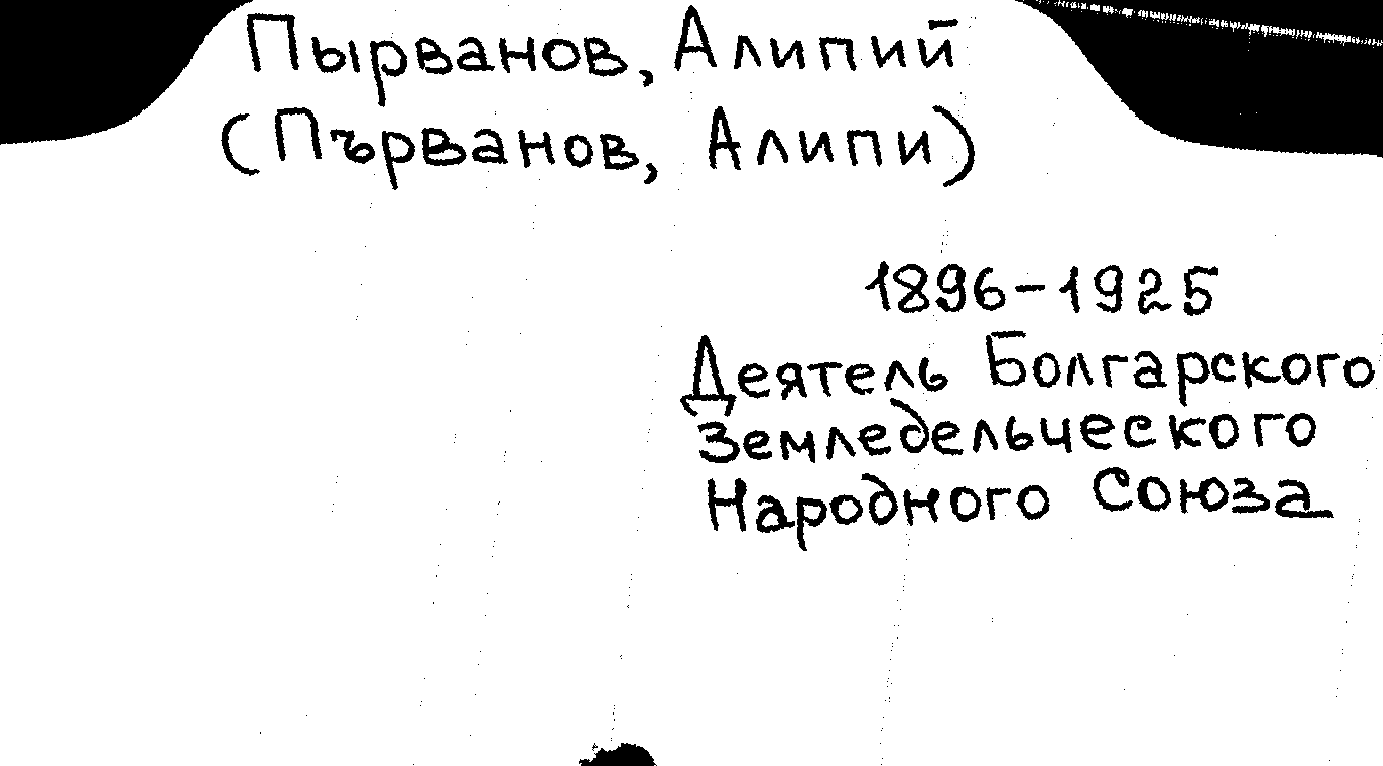 Пырванов, Алипий
(Първанов, Алипи)
1896-1925
Деятель Болгарского
Земледельческого
Народного Союза